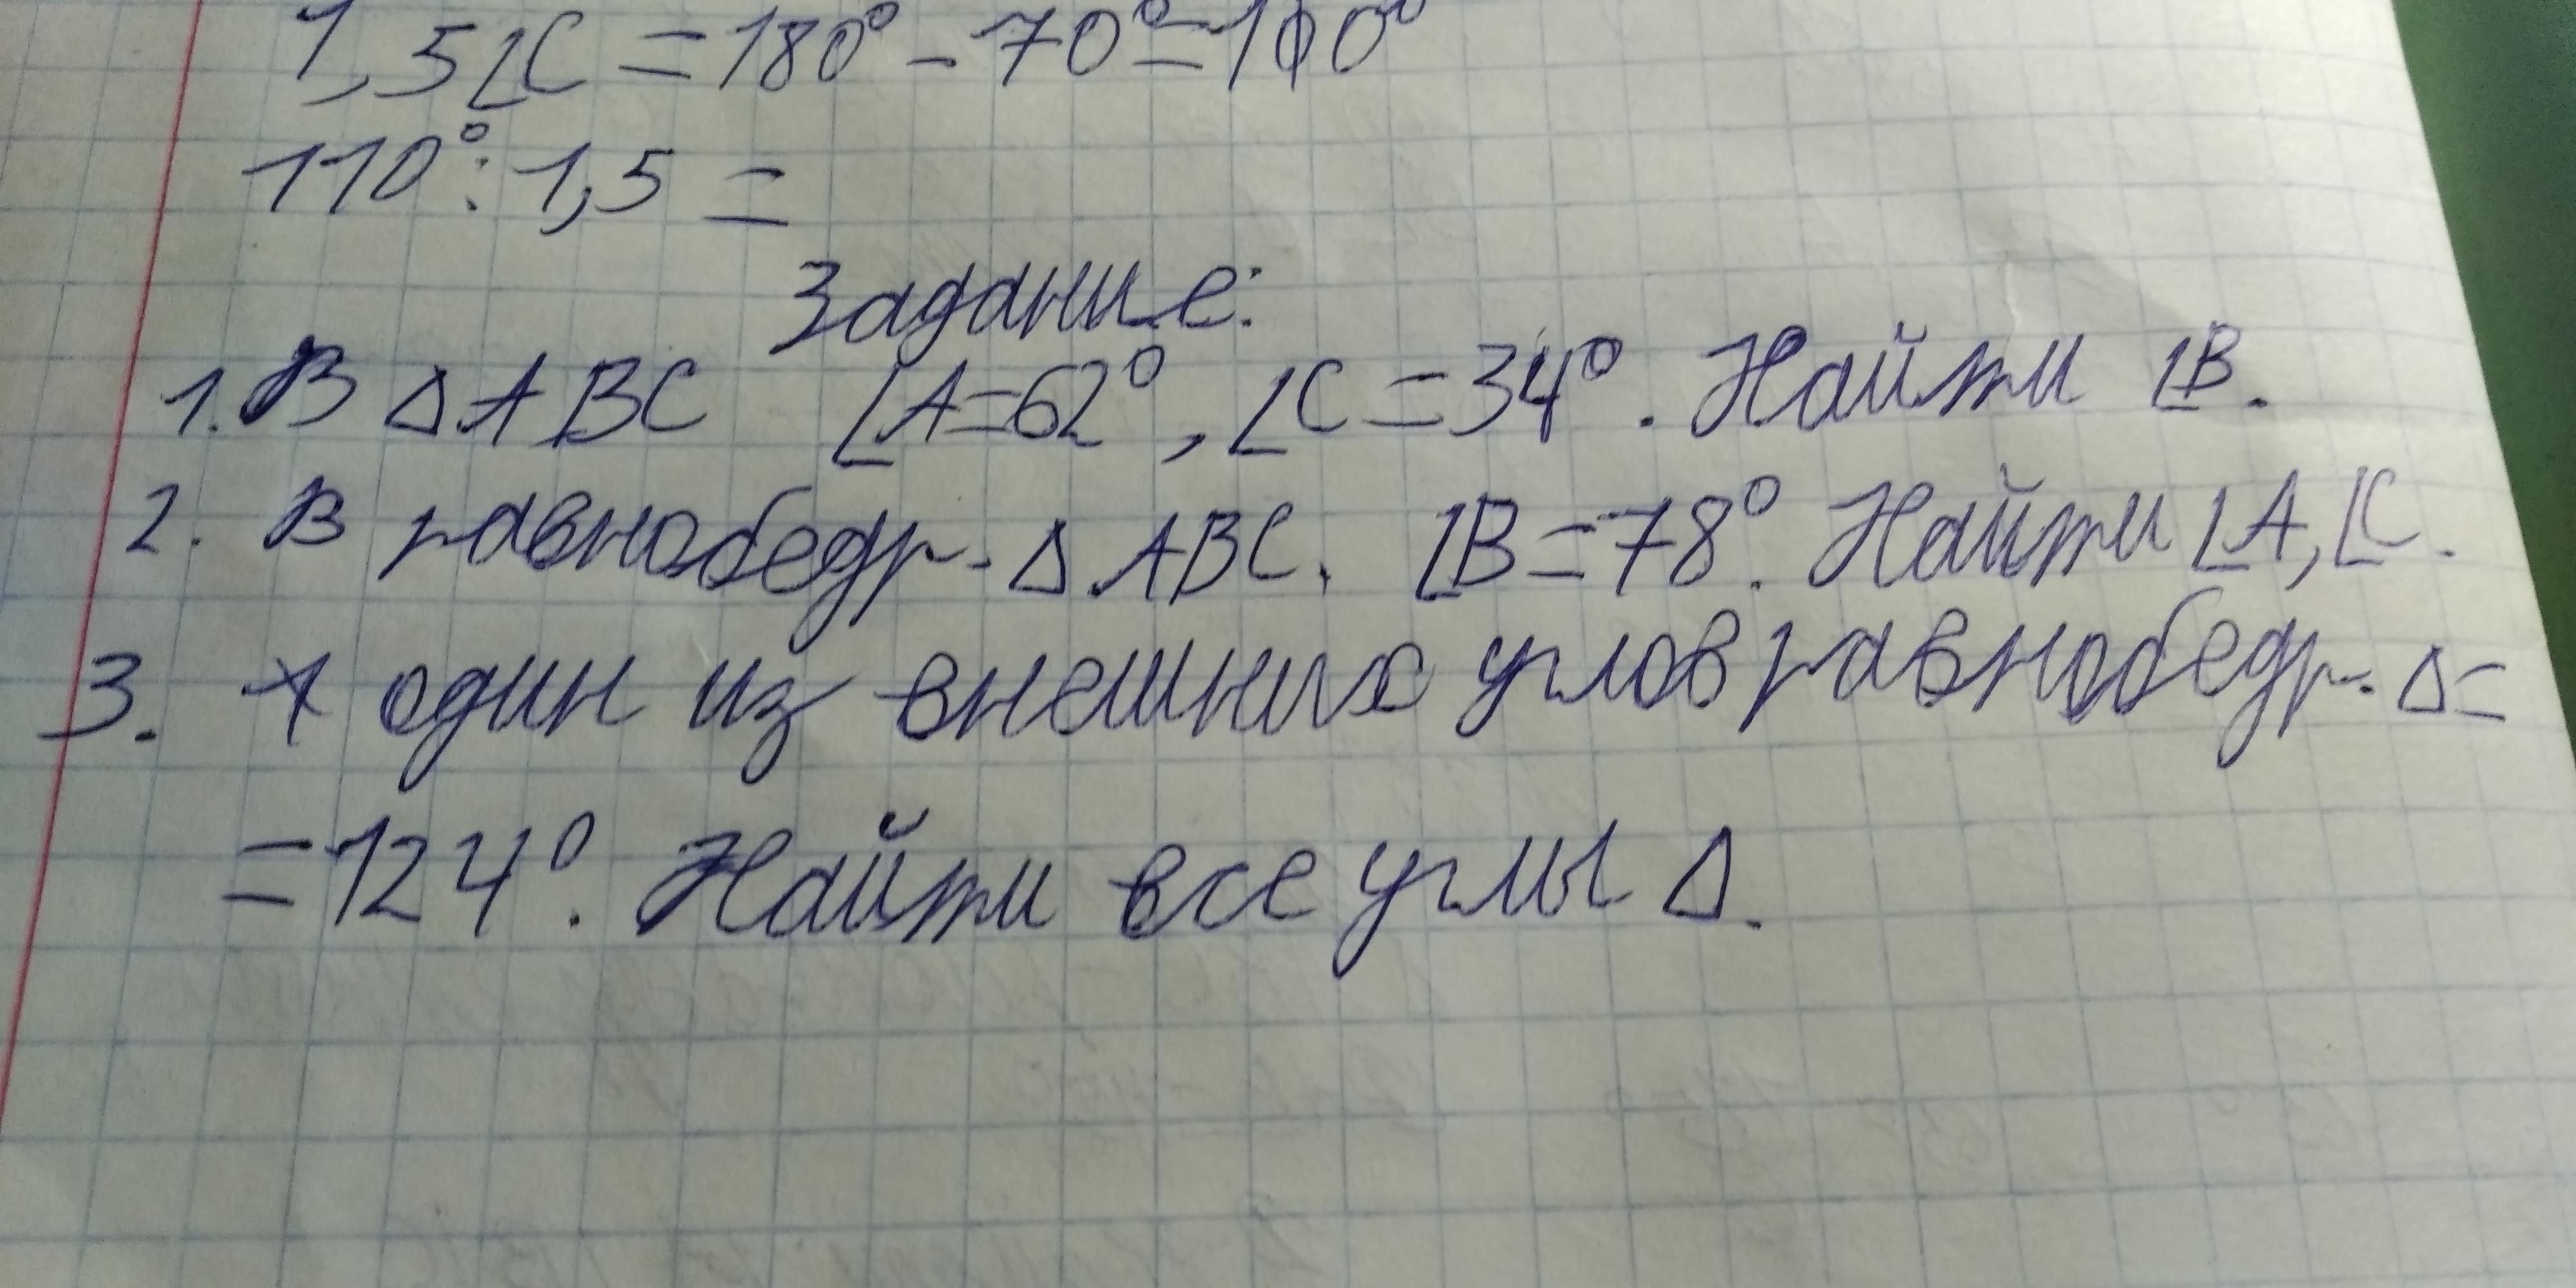 1,5∠C = 180° - 70° = 110°
110° : 1,5 =
Задание:
1. В ΔABC ∠A=62°, ∠C=34°. Найти ∠B.
2. В равнобедр. ΔABC. ∠B=78°. Найти ∠A, ∠C.
3. * один из внешних углов равнобедр. Δ=
=124°. Найти все углы Δ.